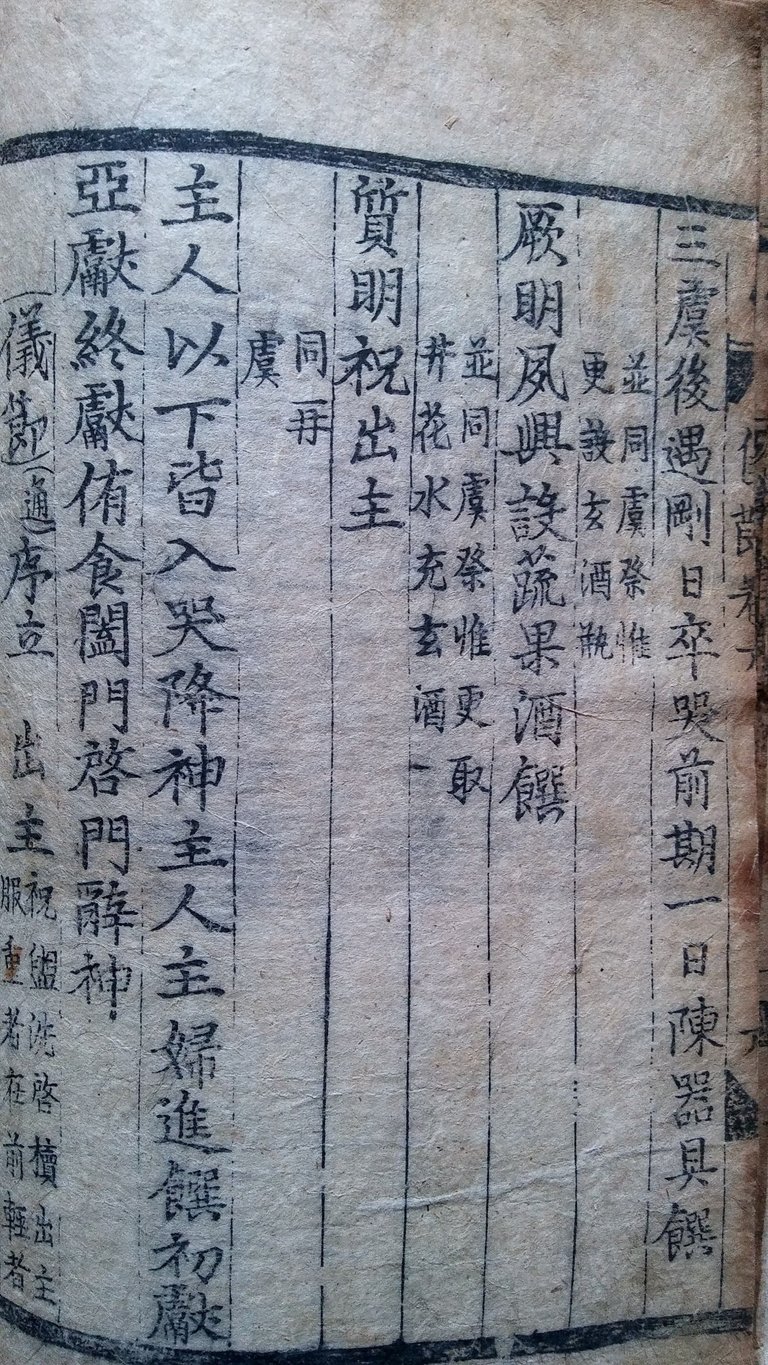 三虞後遇剛日卒哭前期一日陳器具饌
並同虞祭惟
更設玄酒瓶
厥明夙興設蔬果酒饌
並同虞祭惟更取
井花水充玄酒
質明祝出主
同再
虞
主人以下皆入哭降神主人主婦進饌初獻
亞獻終獻侑食闔門啓門辭神
儀節通序立 出主
祝盥洗啓櫝出主
服重者在前輕者